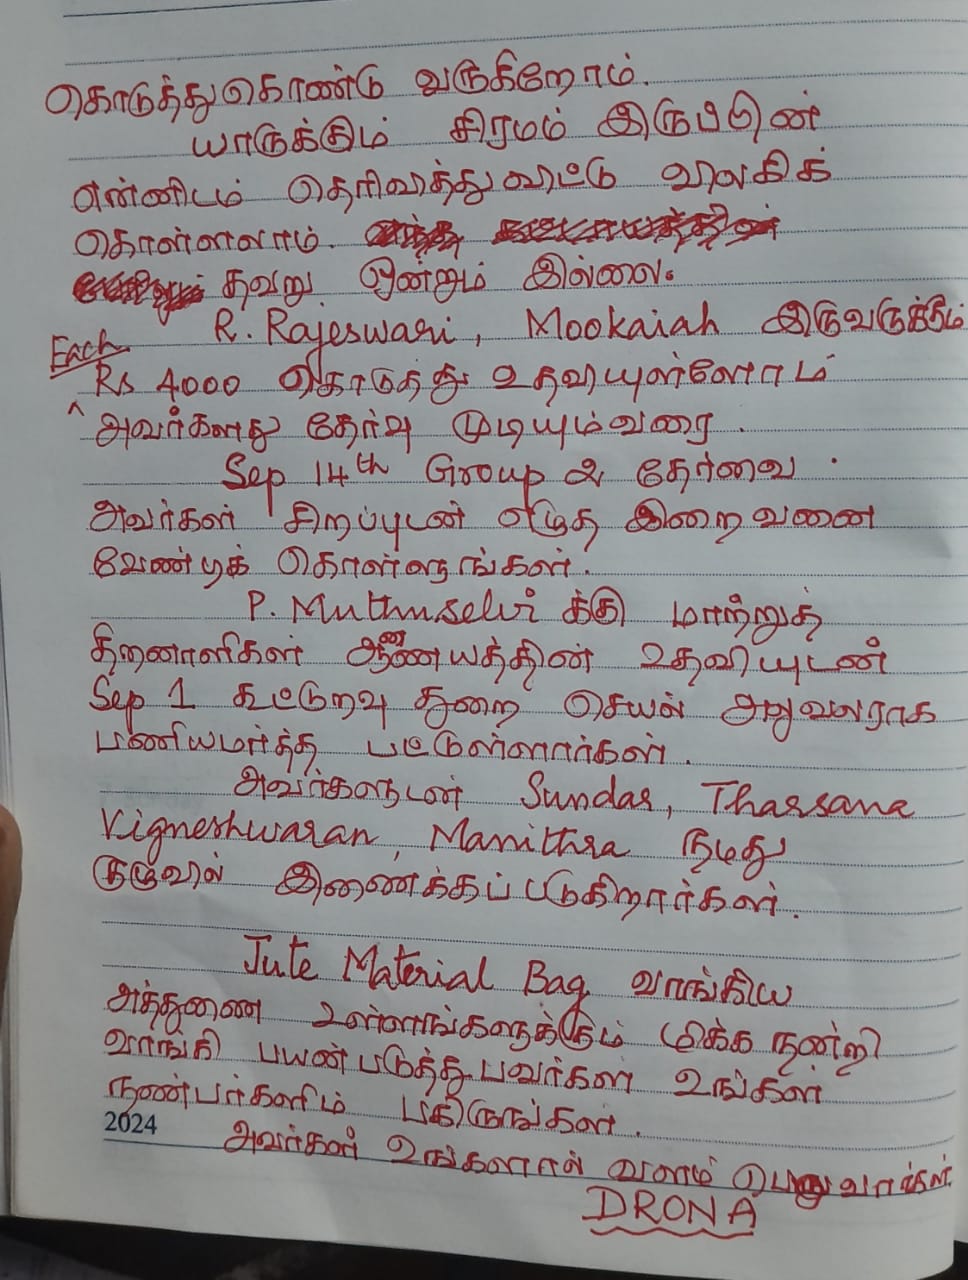 கொடுத்து கொண்டு வருகிறோம்.
யாருக்கும் சிரமம் இருப்பின்
என்னிடம் தெரிவித்து விட்டு விலகிக்
கொள்ளலாம்.
தவறு ஒன்றும் இல்லை.
R. Rajeswari, Mookaiah இருவருக்கும்
Each
Rs 4000 கொடுத்து உதவியுள்ளோம்
அவர்களது தேர்வு முடியும்வரை.
Sep 14th Group 2 தேர்வை
அவர்கள் சிறப்புடன் எழுத இறைவனை
வேண்டிக் கொள்ளுங்கள்.
P. Muthuselvi க்கு மாற்றுத்
திறனாளிகள் ஆணையத்தின் உதவியுடன்
Sep 1 கூட்டுறவு துறை செயல் அலுவலராக
பணியமர்த்த பட்டுள்ளார்கள்.
அவர்களுடன் Sundar, Tharsana
Vigneshwaran, Manithra நமது
குழுவில் இணைக்கப் படுகிறார்கள்.
Jute Material Bag வாங்கிய
அத்துணை உள்ளங்களுக்கும் மிக்க நன்றி
வாங்கி பயன்படுத்துபவர்கள் உங்கள்
நண்பர்களிடம் பகிருங்கள்.
2024
அவர்கள் உங்களால் வளம் பெறுவார்கள்.
DRONA